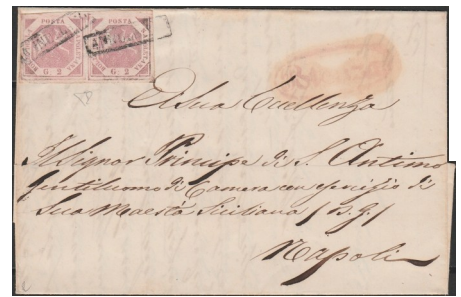 POSTA POSTA
G 2 G 2
A Sua Eccellenza
Il Signor Principe di S. Antimo
Gentiluomo di Camera con esercizio di
Sua Maestà Siciliana (D. G.)
Napoli